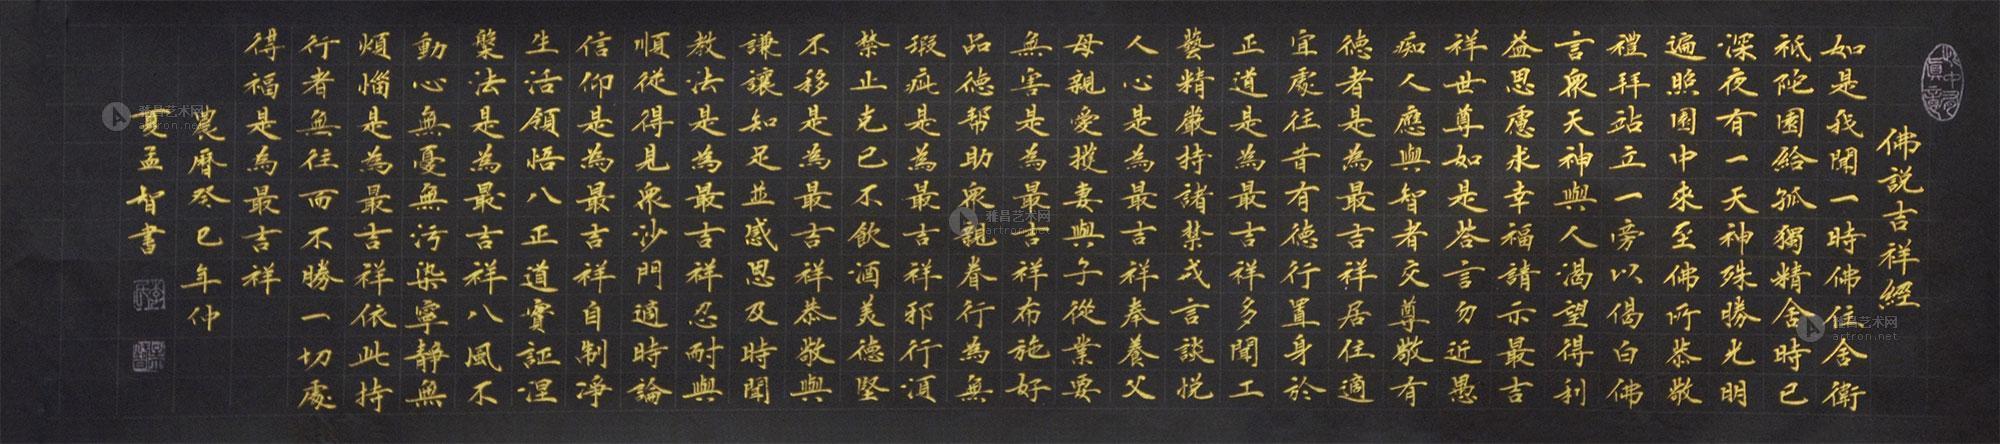 佛說吉祥經
如是我聞一時佛住舍衛
祇陀園給孤獨精舍時已
深夜有一天神殊勝光明
遍照園中來至佛所恭敬
禮拜站立一旁以偈白佛
言衆天神與人渴望得利
益思慮求幸福請示最吉
祥世尊如是答言勿近愚
痴人應與智者交尊敬有
德者是為最吉祥居住適
宜處往昔有德行置身於
正道是為最吉祥多聞工
藝精嚴持諸禁戒言談悅
人心是為最吉祥奉養父
母親愛護妻與子從業要
無害是為最吉祥布施好
品德帮助衆親眷行為無
瑕疵是為最吉祥邪行須
禁止克己不飲酒美德堅
不移是為最吉祥恭敬與
謙讓知足並感恩及時聞
教法是為最吉祥忍耐與
順從得見衆沙門適時論
信仰是為最吉祥自制淨
生活領悟八正道實証涅
槃法是為最吉祥八風不
動心無憂無污染寧靜無
煩惱是為最吉祥依此持
行者無往而不勝一切處
得福是為最吉祥
農曆癸巳年仲
夏孟智書
雅昌艺术网
artron.net
雅昌艺术网
artron.net
雅昌艺术网
artron.net